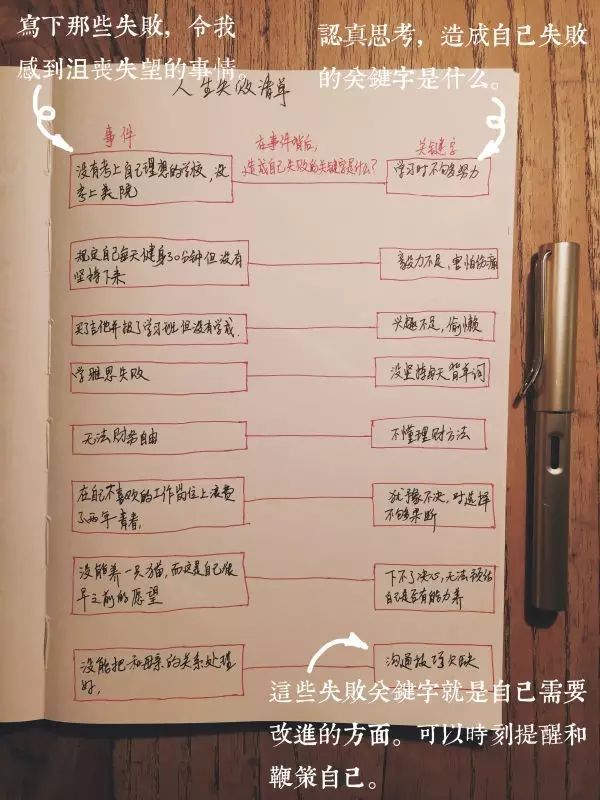 寫下那些失敗，令我
感到沮喪失望的事情。
認真思考，造成自己失敗
的关鍵字是什么。
人生失败清单
事件
在事件背后，
造成自己失败的关键字是什么？
关键字
没有考上自己理想的学校，没
考上美院
学习时不够努力
规定自己每天健身30分钟但没有
坚持下来
毅力不足，害怕伤痛
买了吉他并报了学习班但没有学成.
兴趣不足，偷懒
学雅思失败
没坚持每天背单词
无法财务自由
不懂理财方法
在自己不喜欢的工作岗位上浪费
了两年青春.
犹豫不决，对选择
不够果断
没能养一只猫，而这是自己很
早之前的愿望
下不了决心，无法预估
自己是否有能力养
没能把和母亲的关系处理
好.
沟通技巧欠缺
這些失敗关鍵字就是自己需要
改進的方面。可以時刻提醒和
鞭策自己。